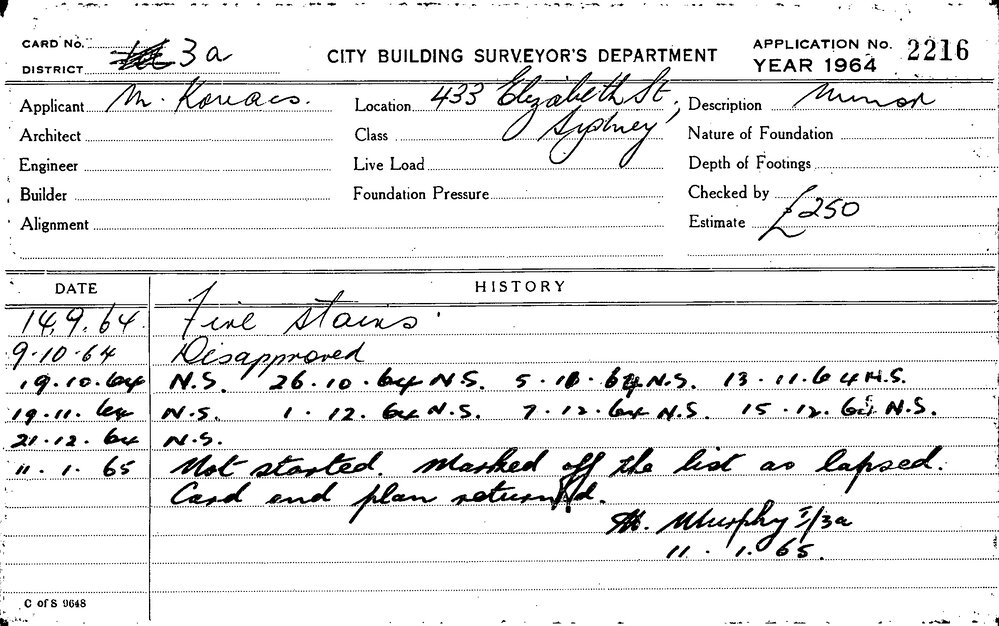 CARD No. 3a
DISTRICT
CITY BUILDING SURVEYOR'S DEPARTMENT
APPLICATION No. 2216
YEAR 1964
Applicant M. Kovacs.
Location 433 Elizabeth St, Sydney
Description Minor
Architect
Class
Nature of Foundation
Engineer
Live Load
Depth of Footings
Builder
Foundation Pressure
Checked by
Alignment
Estimate £250
DATE HISTORY
14.9.64. Fire stairs.
9.10.64 Disapproved
19.10.64 N.S. 26.10.64 N.S. 5.11.64 N.S. 13.11.64 N.S.
19.11.64 N.S. 1.12.64 N.S. 7.12.64 N.S. 15.12.64 N.S.
21.12.64 N.S.
11.1.65 Not started. Marked off the list as lapsed.
Card and plan returned.
Murphy I/3a
11.1.65.
C of S 9648